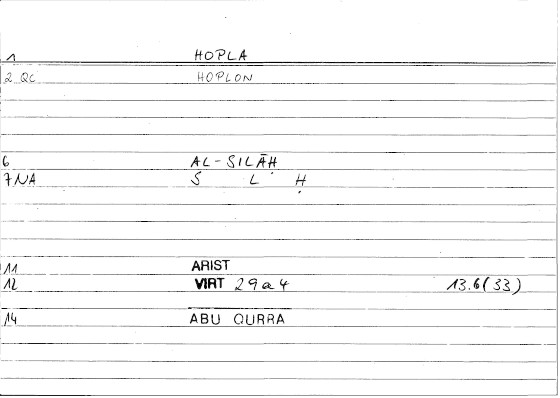 1 HOPLA
2 QC HOPLON
6 AL-SILĀḤ
7 NA S L Ḥ
11 ARIST
12 VIRT 29a4 13.6(33)
14 ABU QURRA